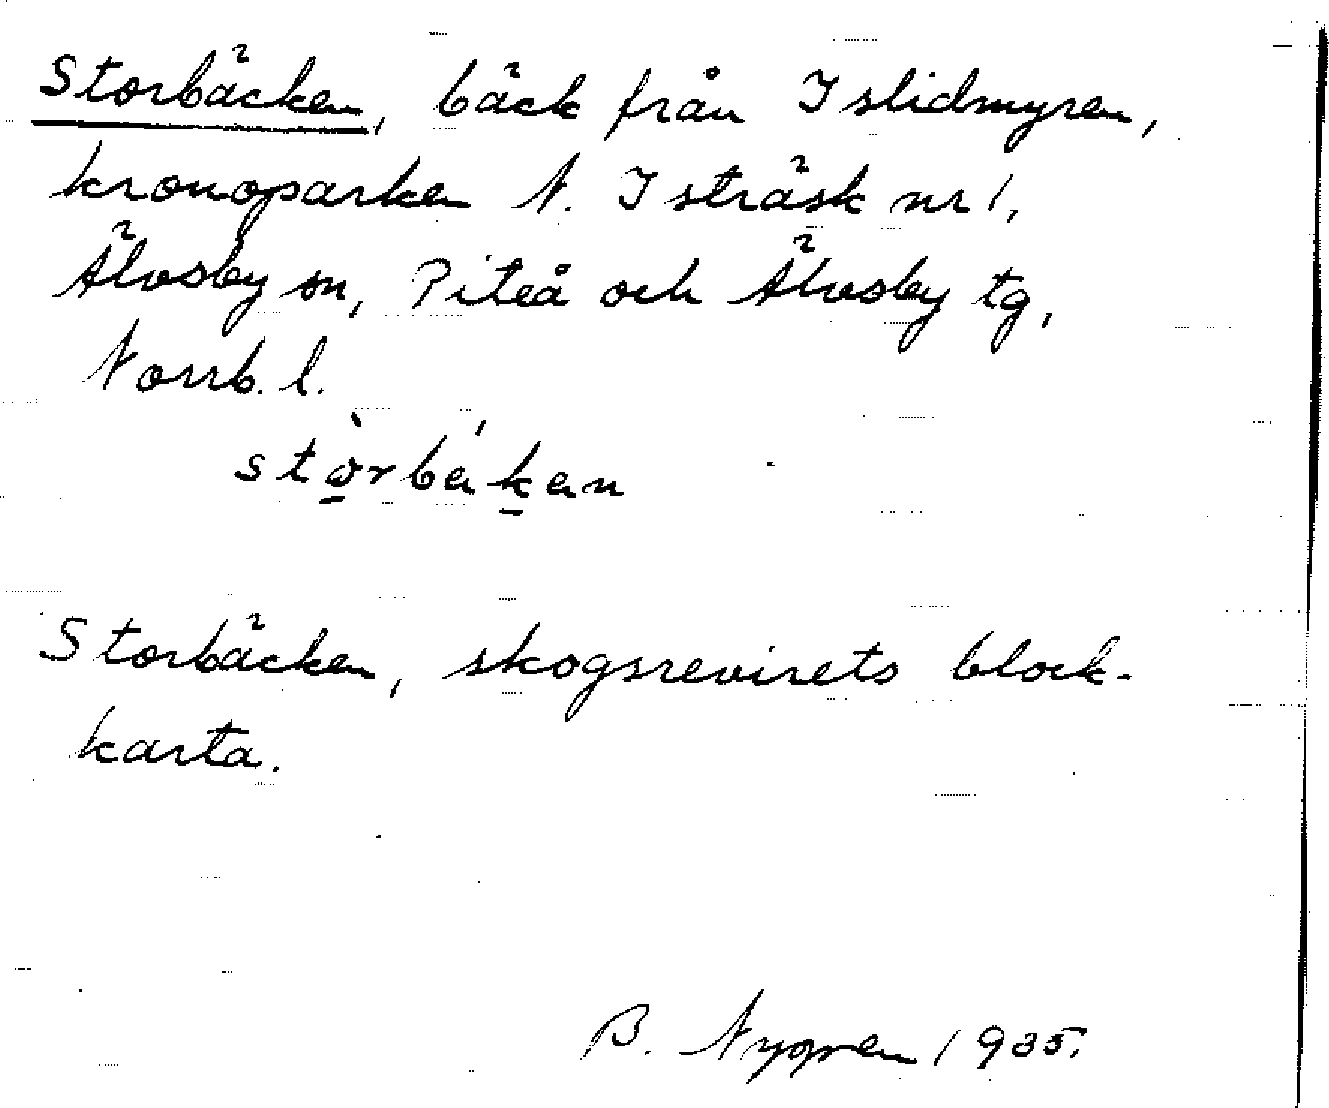 Storbäcken, bäck från Islidmyren,
kronoparken N. Isträsk nr 1,
Älvsby sn, Piteå och Älvsby tg,
Norrb. l.
stò̠rbáḵan
Storbäcken, skogsrevirets block-
karta.
B. Nygren 1935.